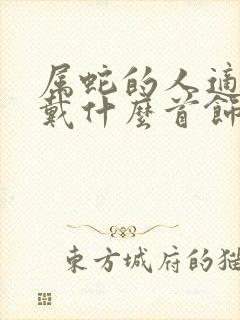 属蛇的人适
戴什麼首飾
東方城府的猫